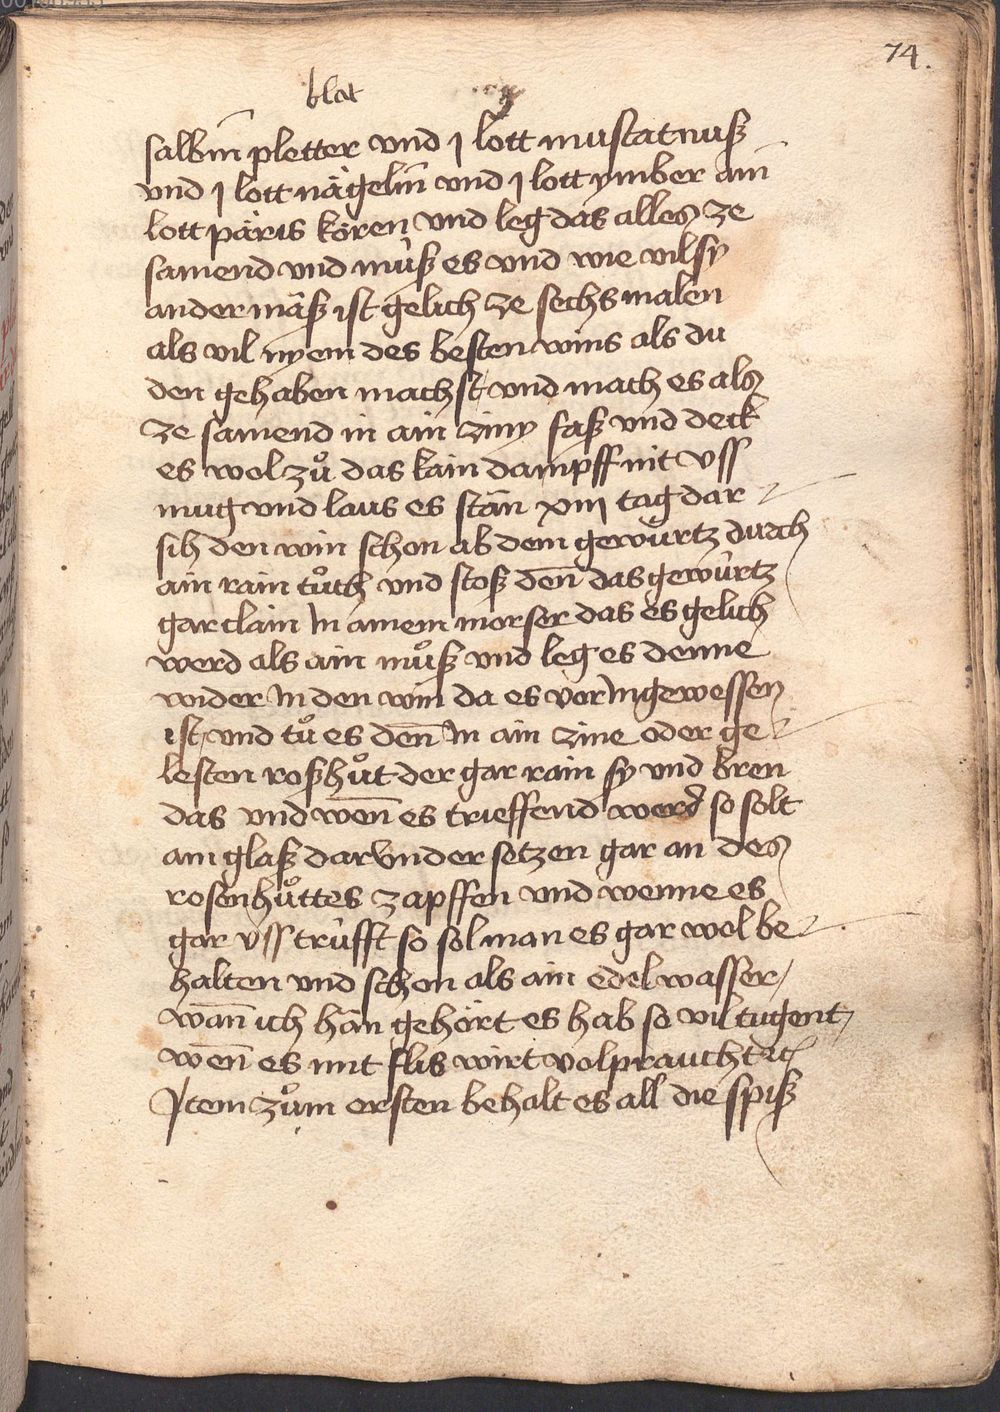 74.
blat
salbin̄ pletter vnd j lott muscat nuß
vnd j lott nägelin̄ vnd j lott ymber ain̄
lott päris kören vnd leg das alles ze
samend vnd müß es vnd wie vil sy
ander mäß ist gelich ze sechs malen
als vil nyem des besten wins als du
den gehaben machst vnd mach es als
ze samend in ain ziny faß vnd deck
es wol zuͦ das kain dampff nit vss
mug vnd laus es stän xiiij tag dar
sih den win schon ab dem gewürtz durch
ain rain tuͦch vnd stoß den̄ das gewürtz
gar clain In ainem morser das es gelich
werd als ain muͦß vnd leg es denne
wider In den win da es vor In gewessen
ist vnd tuͦ es den̄ In ain zine oder ge
lesten roßhuͦt der gar rain sy vnd bren
das vnd wen̄ es trieffend werd so solt
ain glaß dar vnder setzen gar an des
rosenhuͦttes zapffen vnd wenne es
gar vss trüfft so sol man es gar wol be
halten vnd schon als ain edel wasser
wan̄ ich hän gehört es hab so vil tugent
wen̄ es mit flis wirt volpraucht etc
Item zuͦm ersten behalt es all die spiß